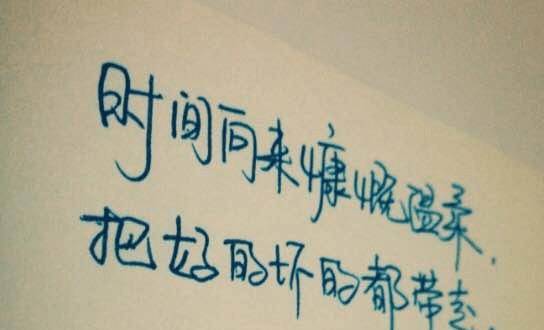 时间向来慷慨温柔.
把好的坏的都带走